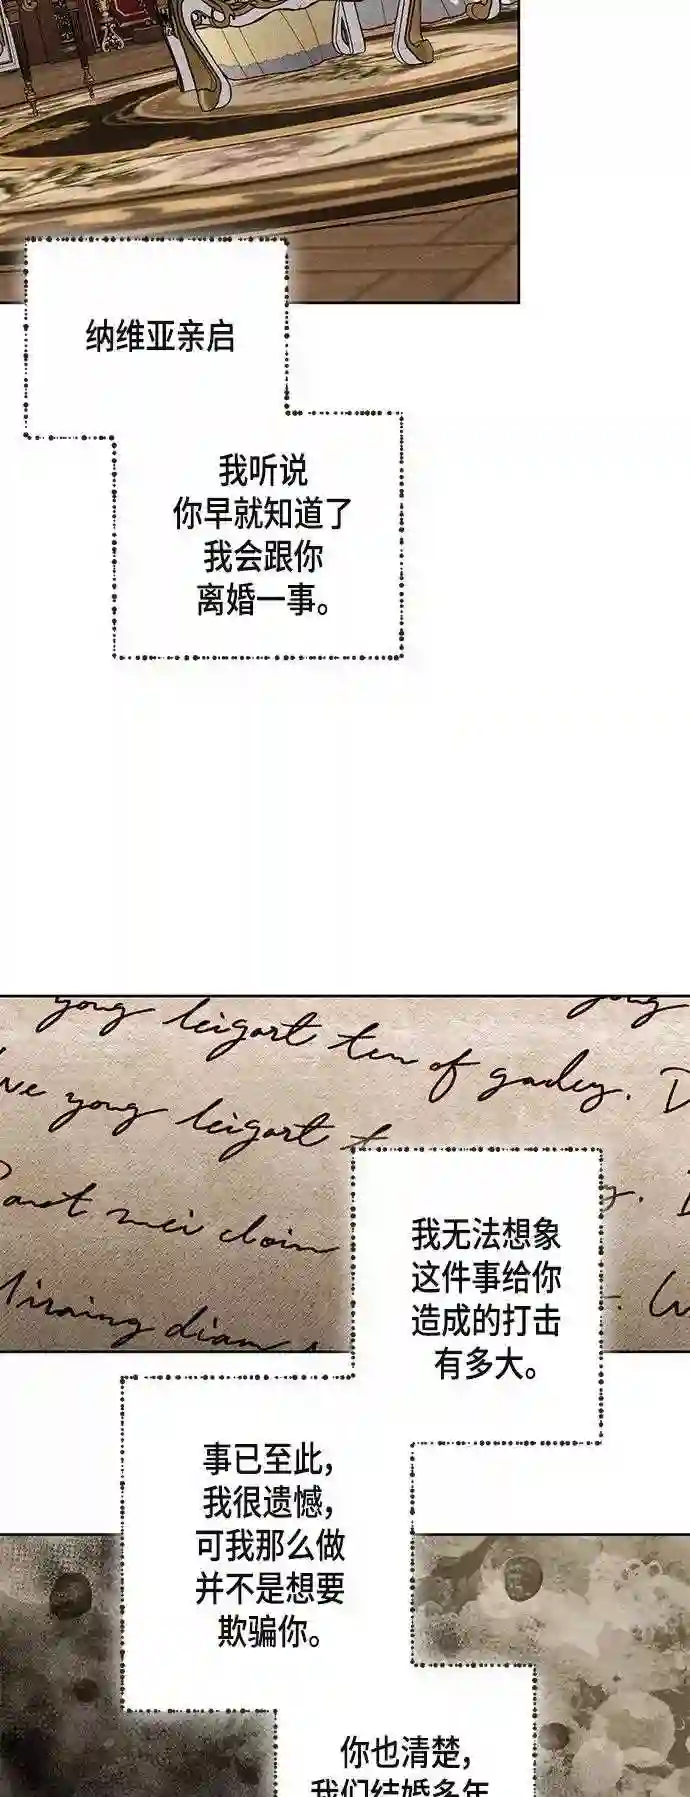 纳维亚亲启
我听说
你早就知道了
我会跟你
离婚一事。
yong leigart ten of gadey. D
ve yong leigart t
我无法想象
这件事给你
造成的打击
有多大。
事已至此，
我很遗憾，
可我那么做
并不是想要
欺骗你。
你也清楚，
我们结婚多年